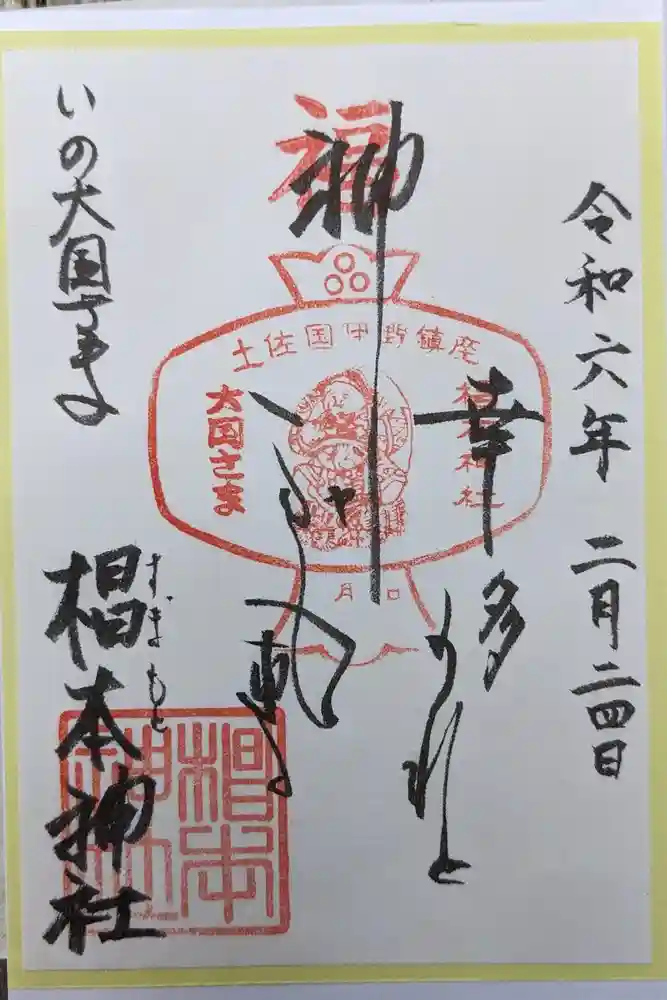 令和六年 二月二四日
幸多かれと
神
福
土佐国伊野鎮座
椙本神社
大国さま
いの大国さま
すぎもと
椙本神社
椙本神社